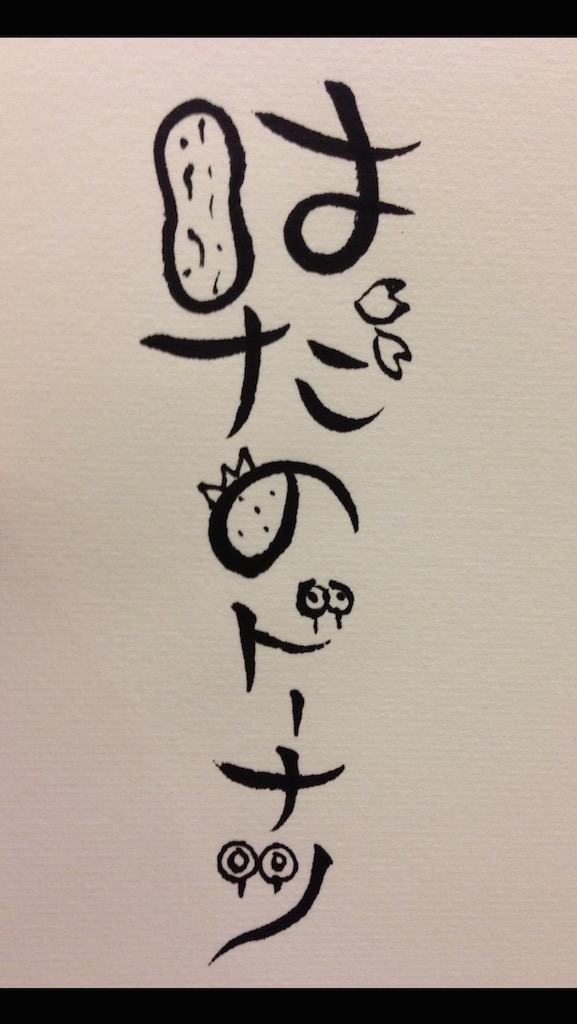 はだのドーナツ